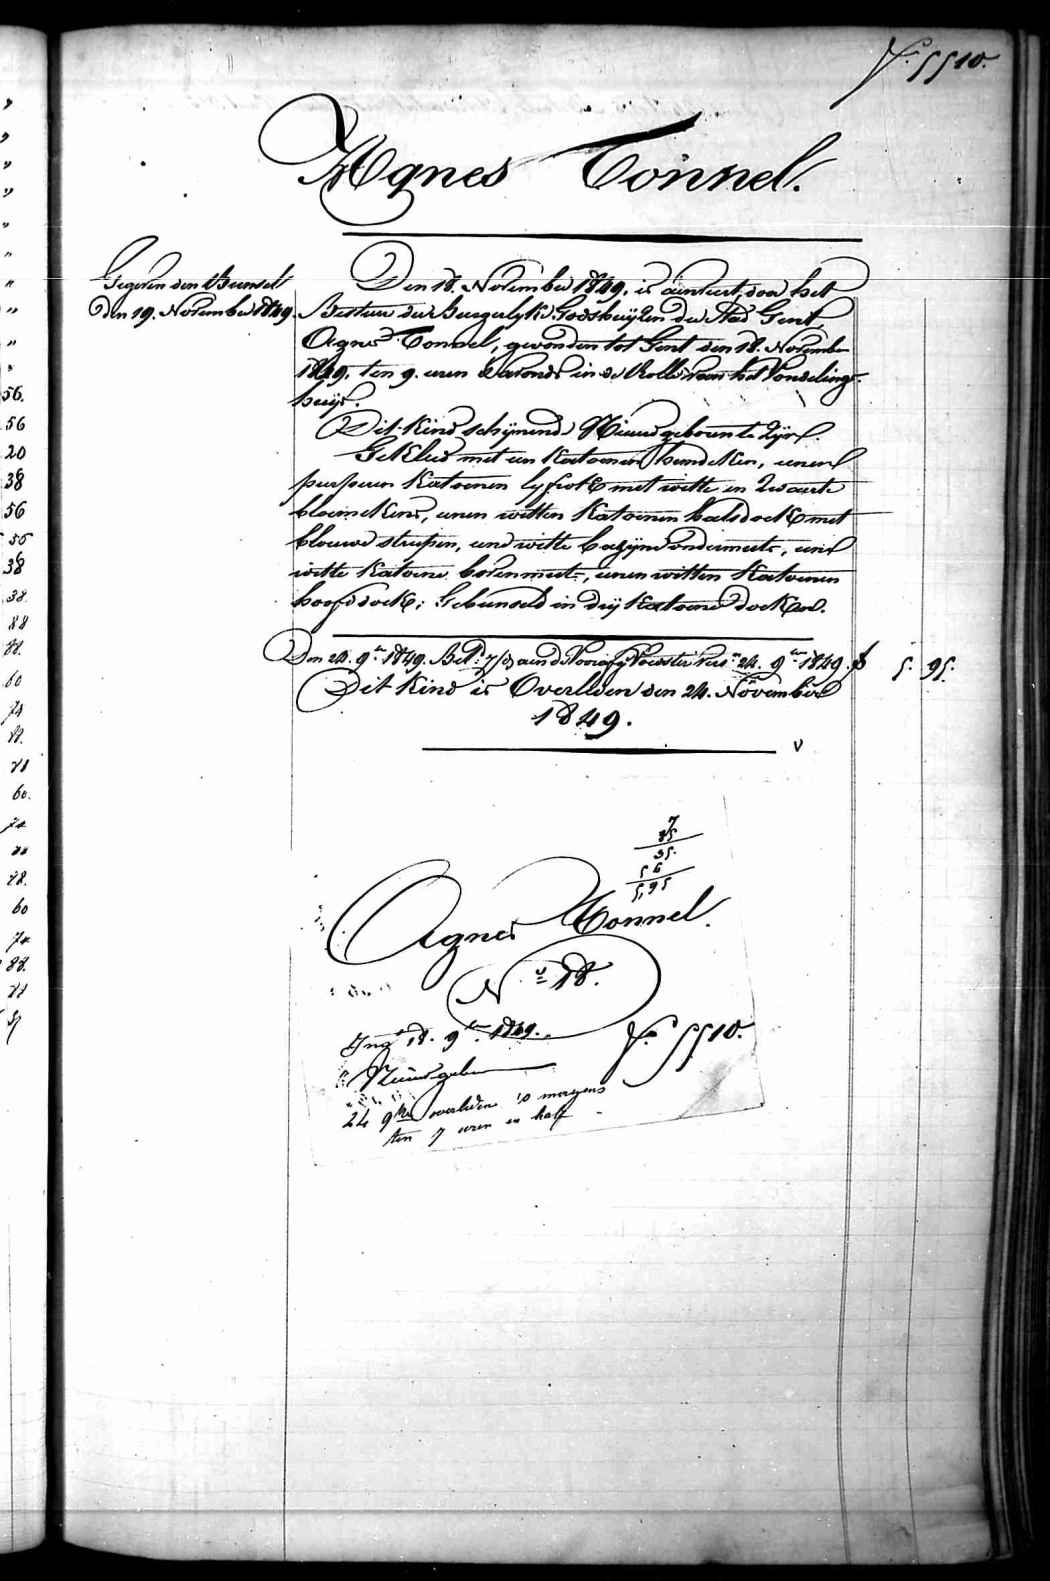 f.° 5510.
Agnes Tonnel.
Gegeven den Bunsel
Den 19. November 1849.
Den 18. November 1849, is aenveert, door het
Bestuer der Burgerlyke Godshuyzen der Stad Gent,
Agnes Tonnel, gevonden tot Gent den 18. November
1849, ten 9. uren S'avonds in de Rolle van het Vondelings-
huys.
Dit Kind schynende Nieuwgeboren te Zyn.
Gekleed met een Katoenen hemdeken, eenen
purperen Katoenen lyfrok met witte en Zwarte
bloemekens, eenen witten Katoenen halsdoek met
blouwe strepen, eene witte bazyne ondermuts, eene
witte Katoene bovenmuts, eenen witten Katoenen
hoofddoek; Gebunseld in dry Katoene doeken.
Den 24. 9.ber 1849. Bet.d 7/d aen de Voorafg. Voedster vers.n 24. 9.ber 1849. f 5. 95.
Dit Kind is Overleden den 24. November
1849.
7
85
35.
5 6
5,95
Agnes Tonnel.
N.° 18.
Ing.t 18. 9.ber 1849.
f.° 5510.
Nieuwgeboren
24 9ber overleden 's morgens
ten 7 uren en half
56.
56
20
38
56
56
38
38.
88
88.
60
74
88.
60.
74
88.
60
74
88.